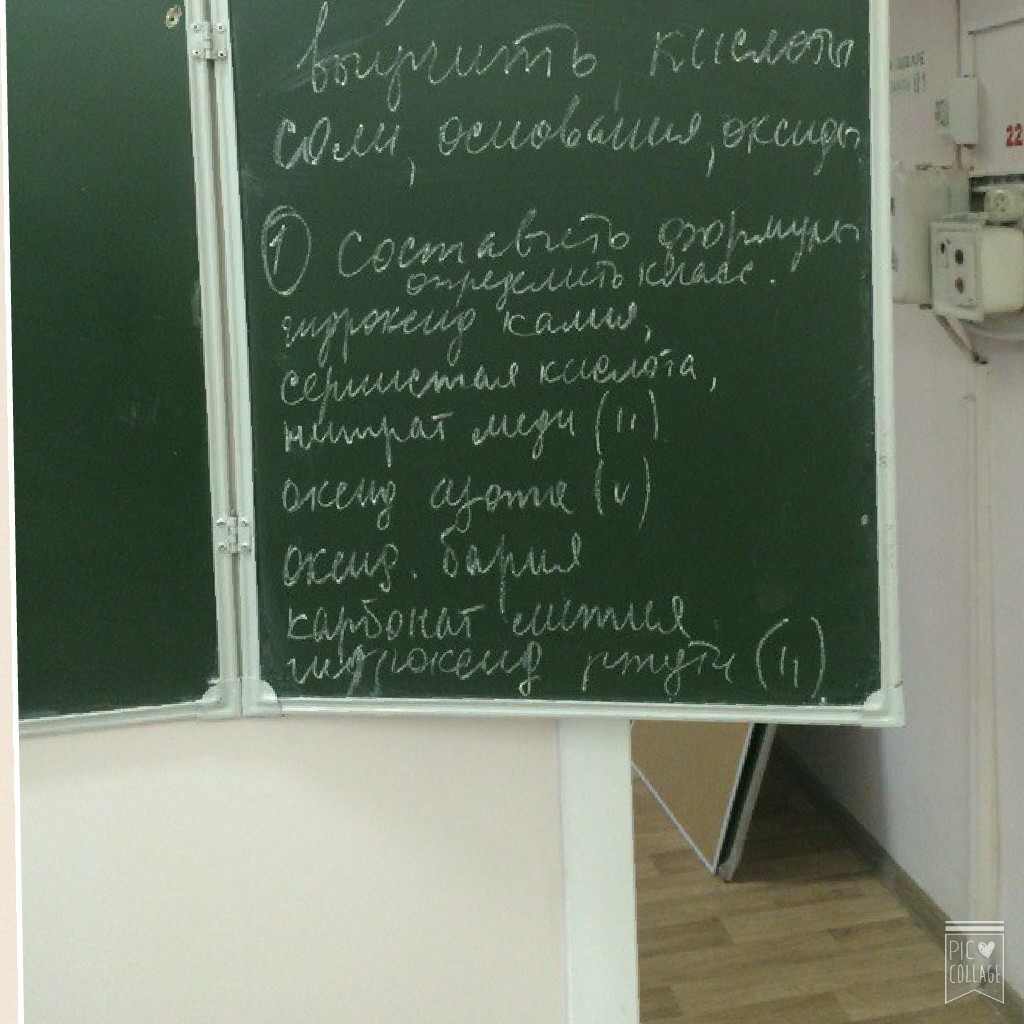 выучить кислоты
соли, основания, оксиды
1 Составить формулы
определить класс.
гидроксид калия,
сернистая кислота,
нитрат меди (II)
оксид азота (V)
оксид. бария
карбонат лития
гидроксид ртути (II)
22
PIC
COLLAGE